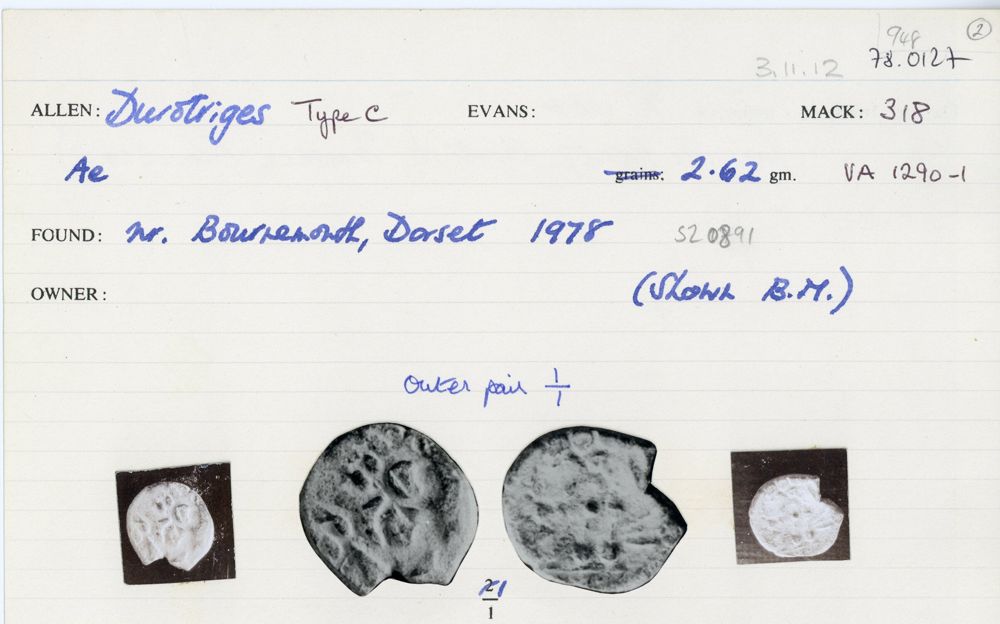 948 2
3.11.12 78.0127
ALLEN: Durotriges Type C EVANS: MACK: 318
Ae grains: 2.62 gm. VA 1290-1
FOUND: nr. Bournemouth, Dorset 1978 S20891
OWNER: (Shown B.M.)
Outer pair 1/1
1